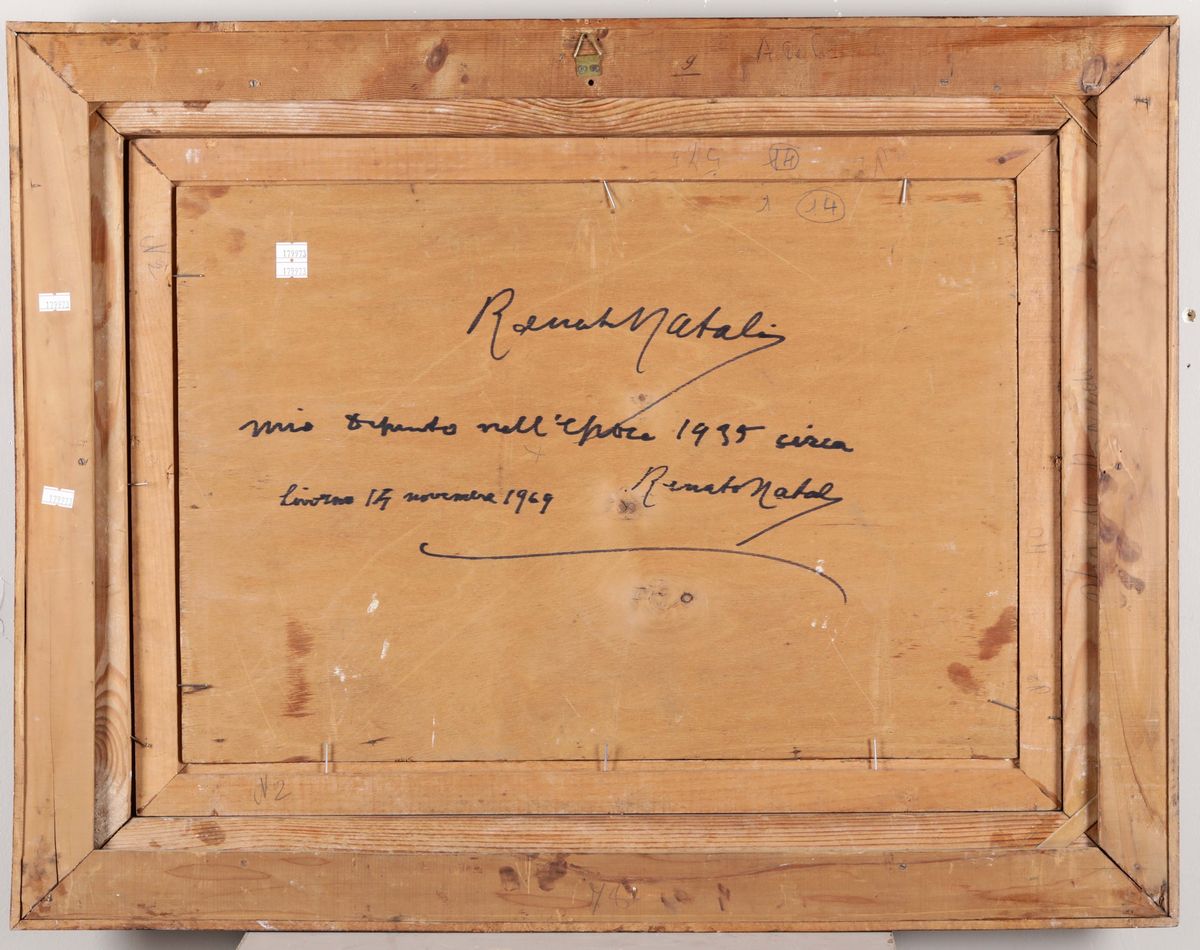 9
14
1 14
179973
179973
179973
179973
Renato Natali
mio dipinto nell'epoca 1935 circa
Livorno 14 novembre 1969
Renato Natali
N2